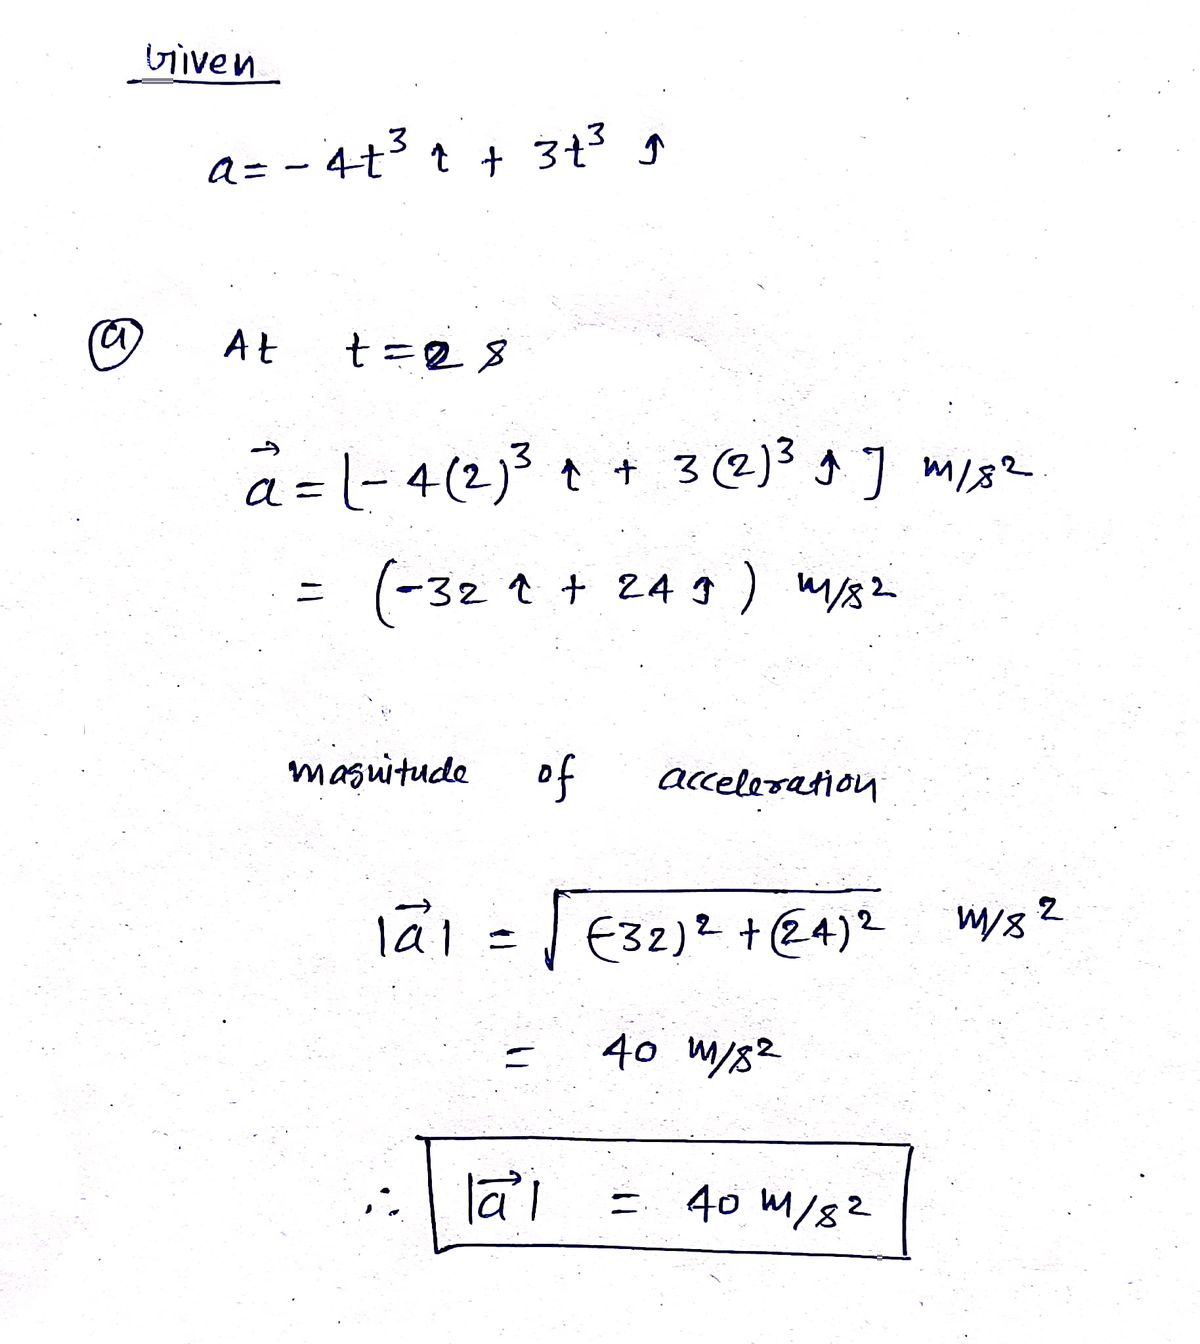 Given
a = - 4t³ î + 3t³ ĵ
(a) At t = 2 s
a⃗ = [- 4(2)³ î + 3(2)³ ĵ ] m/s².
= (-32 î + 24 ĵ ) m/s²
magnitude of acceleration
|a⃗| = √(-32)² + (24)² m/s²
= 40 m/s²
∴ |a⃗| = 40 m/s²